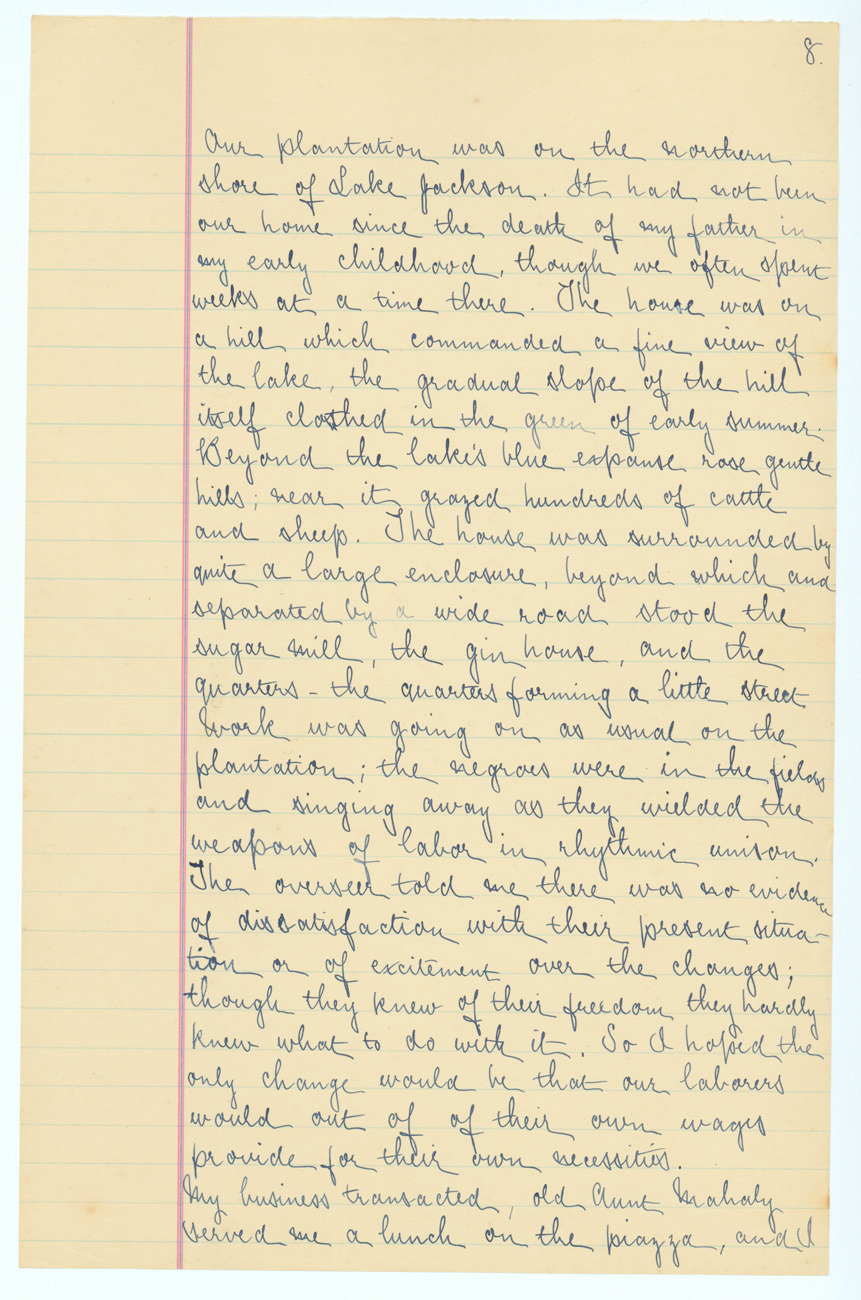 8.
Our plantation was on the northern
shore of Lake Jackson. It had not been
our home since the death of my father in
my early childhood, though we often spent
weeks at a time there. The house was on
a hill which commanded a fine view of
the lake, the gradual slope of the hill
itself clothed in the green of early summer.
Beyond the lake's blue expanse rose gentle
hills; near it grazed hundreds of cattle
and sheep. The house was surrounded by
quite a large enclosure, beyond which and
separated by a wide road stood the
sugar mill, the gin house, and the
quarters - the quarters forming a little street
Work was going on as usual on the
plantation; the negroes were in the fields
and singing away as they wielded the
weapons of labor in rhythmic unison.
The overseer told me there was no evidence
of dissatisfaction with their present situa-
tion or of excitement over the changes;
though they knew of their freedom they hardly
knew what to do with it. So I hoped the
only change would be that our laborers
would out of of their own wages
provide for their own necessities.
My business transacted, old Aunt Mahaly
served me a lunch on the piazza, and I